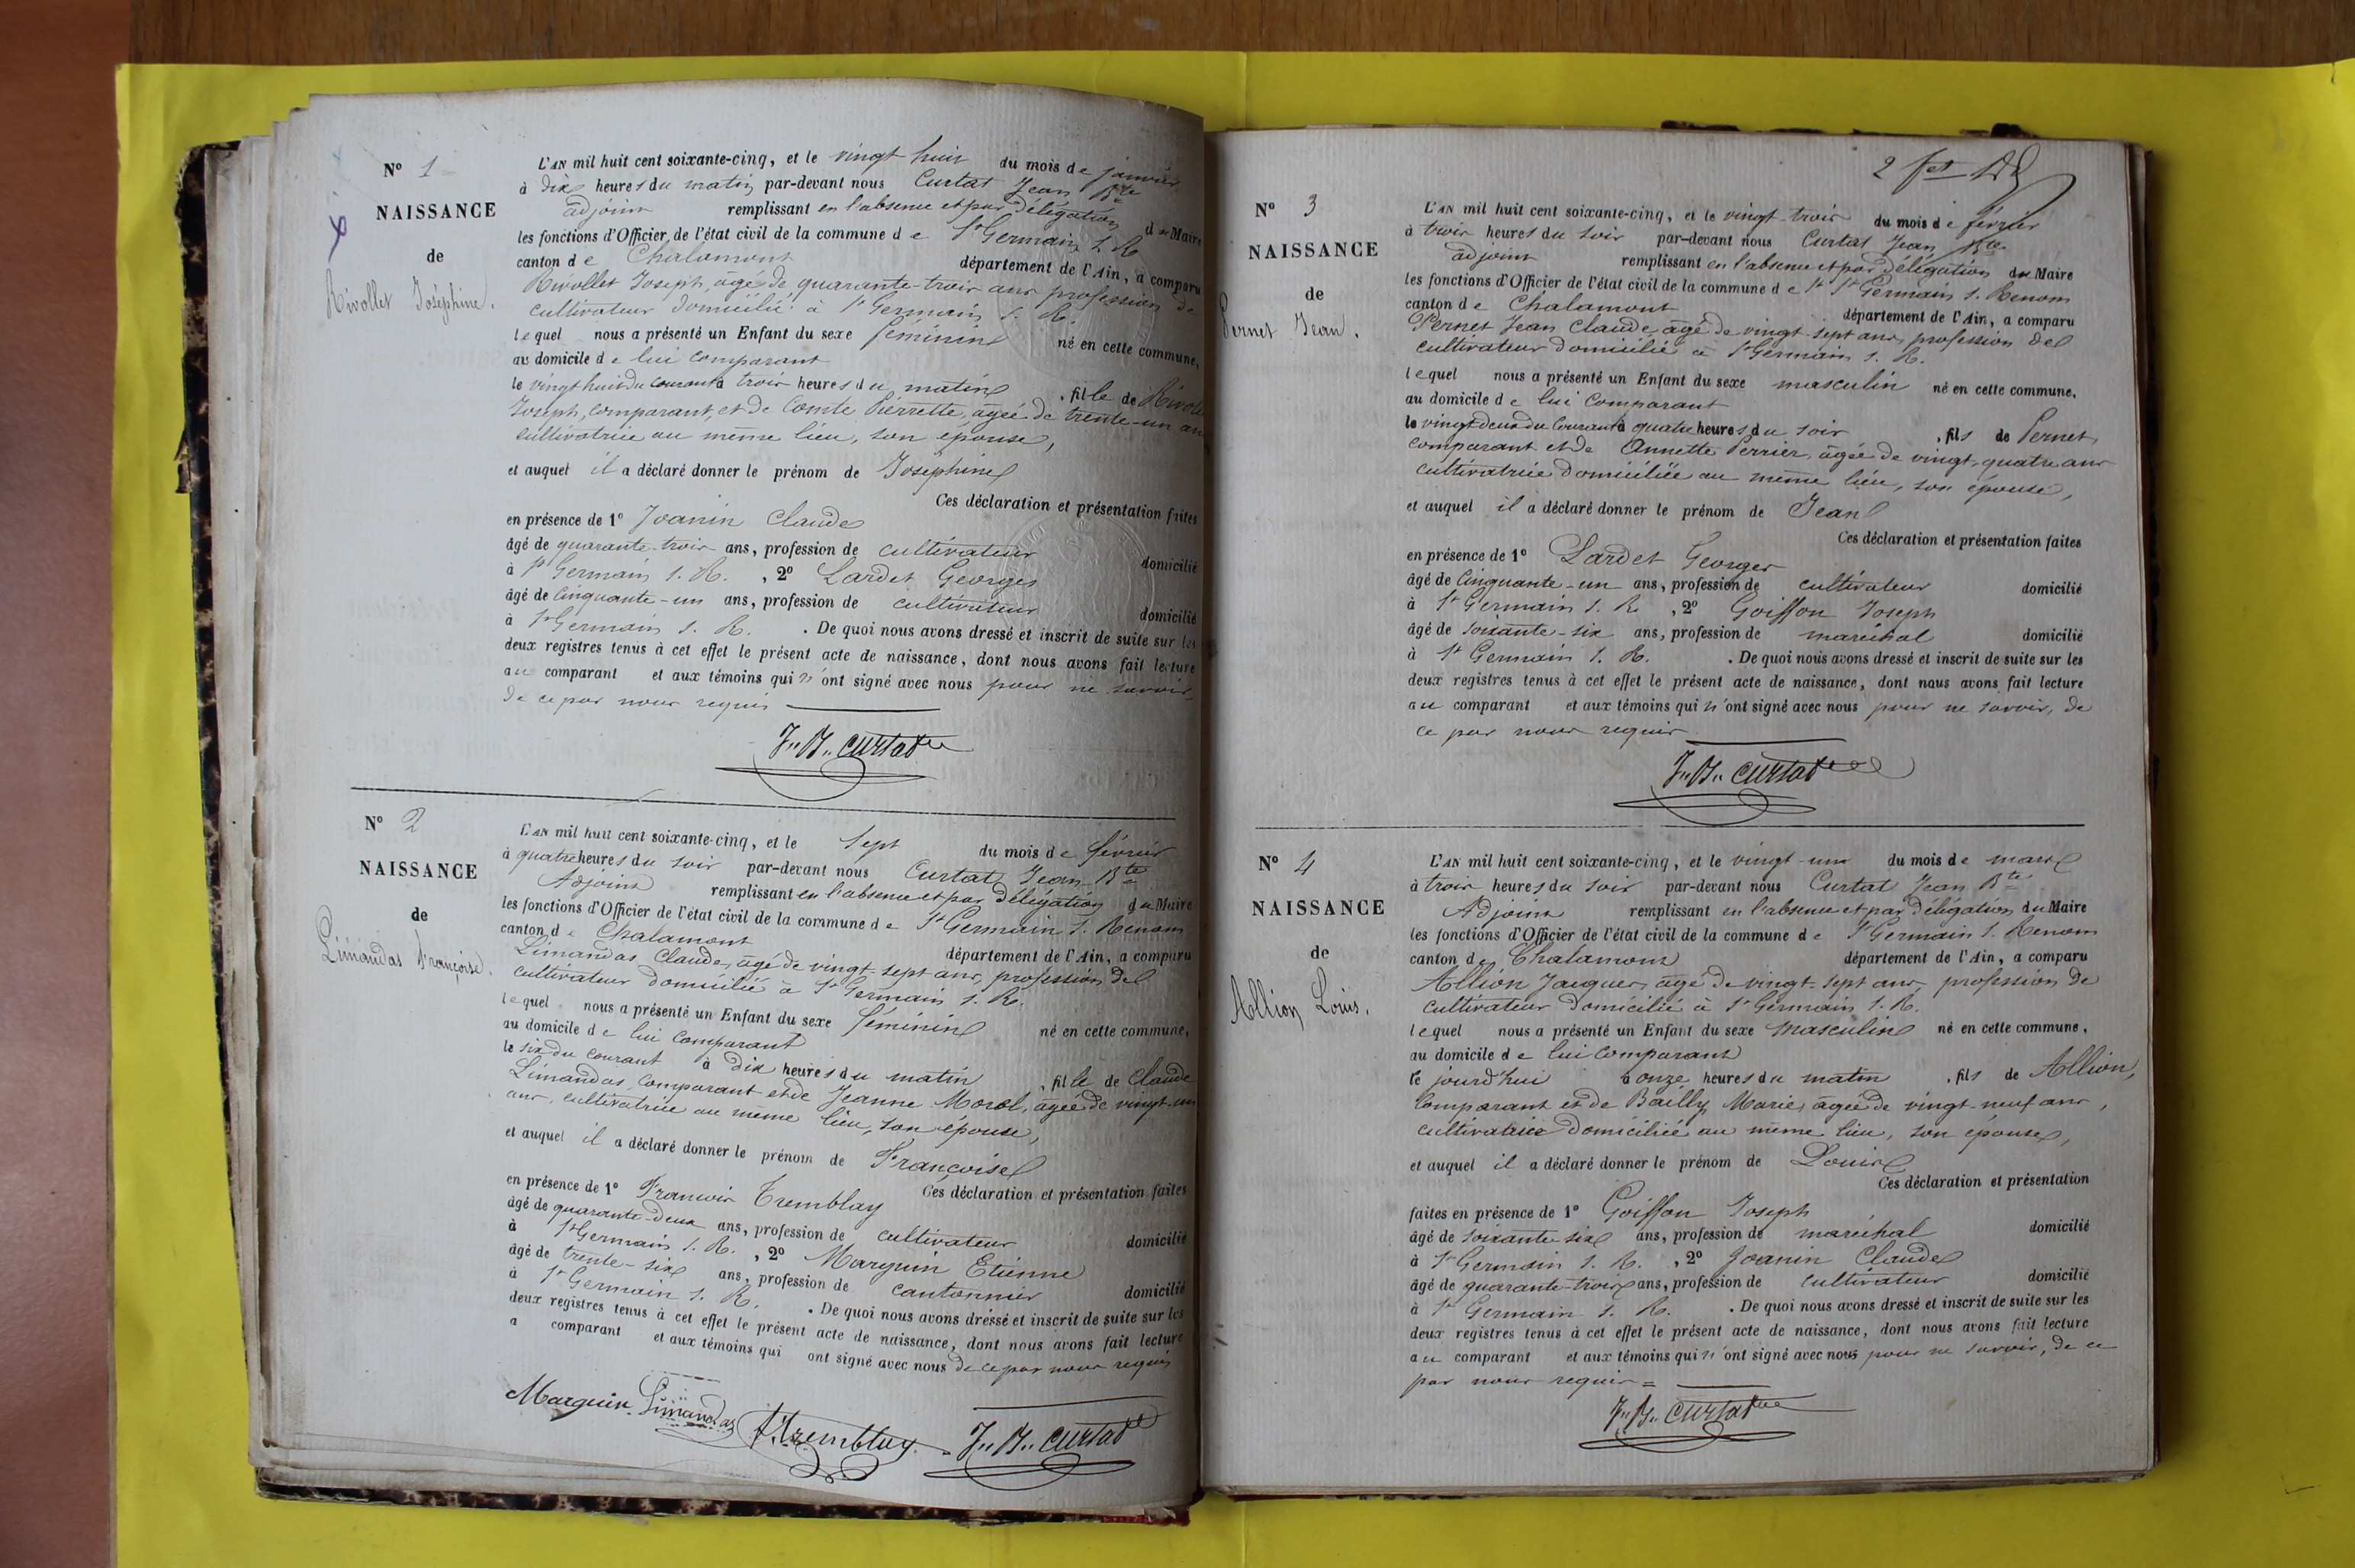 N° 1
NAISSANCE
de
Rivollet Joséphine.
L'AN mil huit cent soixante-cinq, et le vingt huit du mois de janvier
à dix heures du matin par-devant nous Curtat Jean Bte
adjoint remplissant en l'absence et par délégation du Maire
les fonctions d'Officier de l'état civil de la commune de St Germain s. R
canton de Chalamont département de l'Ain, a comparu
Rivollet Joseph, âgé de quarante-trois ans profession de
cultivateur domicilié à St Germain s. R.
lequel nous a présenté un Enfant du sexe féminin né en cette commune,
au domicile de lui comparant
le vingt huit du courant à trois heures du matin, fille de Rivolle
Joseph, comparant, et de Comte Pierrette, âgée de trente-un an
cultivatrice au même lieu, son épouse,
et auquel il a déclaré donner le prénom de Joséphine
Ces déclaration et présentation faites
en présence de 1° Joanin Claude
âgé de quarante-trois ans, profession de cultivateur domicilié
à St Germain s. R., 2° Lardet Georges
âgé de cinquante-un ans, profession de cultivateur domicilié
à St Germain s. R. . De quoi nous avons dressé et inscrit de suite sur les
deux registres tenus à cet effet le présent acte de naissance, dont nous avons fait lecture
au comparant et aux témoins qui n'ont signé avec nous pour ne savoir
de ce par nous requis
J.. B.. Curtat
N° 2
NAISSANCE
de
Limandas Françoise.
L'AN mil huit cent soixante-cinq, et le sept du mois de février
à quatre heures du soir par-devant nous Curtat Jean Bte
Adjoint remplissant en l'absence et par délégation du Maire
les fonctions d'Officier de l'état civil de la commune de St Germain s. Renom
canton de Chalamont département de l'Ain, a comparu
Limandas Claude, âgé de vingt-sept ans, profession de
cultivateur domicilié à St Germain s. R.
lequel nous a présenté un Enfant du sexe féminin né en cette commune,
au domicile de lui comparant
le six du courant à dix heures du matin, fille de Claude
Limandas, comparant et de Jeanne Morel, âgée de vingt-un
ans, cultivatrice au même lieu, son épouse,
et auquel il a déclaré donner le prénom de Françoise
Ces déclaration et présentation faites
en présence de 1° Francois Tremblay
âgé de quarante-deux ans, profession de cultivateur domicilié
à St Germain s. R., 2° Marguin Etienne
âgé de trente-six ans, profession de cantonnier domicilié
à St Germain s. R. . De quoi nous avons dressé et inscrit de suite sur les
deux registres tenus à cet effet le présent acte de naissance, dont nous avons fait lecture
a comparant et aux témoins qui ont signé avec nous de ce par nous requis
Marguin Limandas F. Tremblay J.. B.. Curtat
2 fet
N° 3
NAISSANCE
de
Pernet Jean.
L'AN mil huit cent soixante-cinq, et le vingt-trois du mois de février
à trois heures du soir par-devant nous Curtat Jean Bte
adjoint remplissant en l'absence et par délégation du Maire
les fonctions d'Officier de l'état civil de la commune de St St Germain s. Renom
canton de Chalamont département de l'Ain, a comparu
Pernet Jean Claude, âgé de vingt-sept ans, profession de
cultivateur domicilié à St Germain s. R.
lequel nous a présenté un Enfant du sexe masculin né en cette commune,
au domicile de lui comparant
le vingt-deux du courant à quatre heures du soir, fils de Pernet,
comparant et de Annette Perrier, âgée de vingt-quatre ans
cultivatrice domiciliée au même lieu, son épouse,
et auquel il a déclaré donner le prénom de Jean
Ces déclaration et présentation faites
en présence de 1° Lardet Georges
âgé de cinquante-un ans, profession de cultivateur domicilié
à St Germain s. R., 2° Goiffon Joseph
âgé de soixante-six ans, profession de maréchal domicilié
à St Germain s. R. . De quoi nous avons dressé et inscrit de suite sur les
deux registres tenus à cet effet le présent acte de naissance, dont nous avons fait lecture
au comparant et aux témoins qui n'ont signé avec nous pour ne savoir, de
ce par nous requis
J.. B.. Curtat
N° 4
NAISSANCE
de
Allion Louis.
L'AN mil huit cent soixante-cinq, et le vingt-un du mois de mars
à trois heures du soir par-devant nous Curtat Jean Bte
Adjoint remplissant en l'absence et par délégation du Maire
les fonctions d'Officier de l'état civil de la commune de St Germain s. Renom
canton de Chalamont département de l'Ain, a comparu
Allion Jacques, âgé de vingt-sept ans, profession de
cultivateur domicilié à St Germain s. R.
lequel nous a présenté un Enfant du sexe masculin né en cette commune,
au domicile de lui comparant
le jourd'hui à onze heures du matin, fils de Allion,
comparant et de Bailly Marie, âgée de vingt-neuf ans,
cultivatrice domiciliée au même lieu, son épouse,
et auquel il a déclaré donner le prénom de Louis
Ces déclaration et présentation
faites en présence de 1° Goiffon Joseph
âgé de soixante six ans, profession de maréchal domicilié
à St Germain s. R., 2° Joanin Claude
âgé de quarante-trois ans, profession de cultivateur domicilié
à St Germain s. R. . De quoi nous avons dressé et inscrit de suite sur les
deux registres tenus à cet effet le présent acte de naissance, dont nous avons fait lecture
au comparant et aux témoins qui n'ont signé avec nous pour ne savoir, de ce
par nous requis =
J.. B.. Curtat